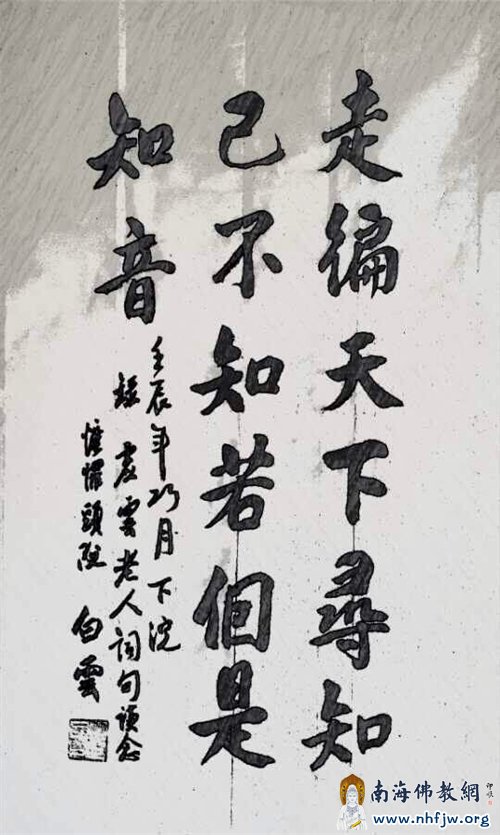 走徧天下尋知
己不知若個是
知音
壬辰年巧月下浣
錄虛雲老人詞句誌念
懺懼頭陀 白雲
南海佛教網
www.nhfjw.org